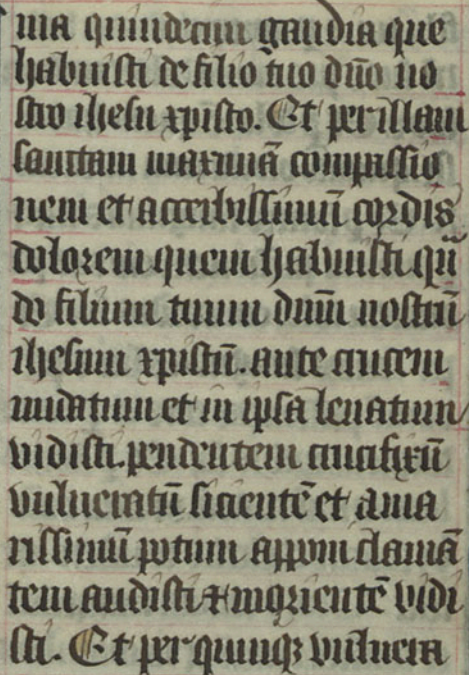 ma quindecim gaudia que
habuisti de filio tuo dño no
stro ihesu xpisto. Et per illam
sanctam maximã compassio
nem et accerbissimuũ cordis
dolorem quem habuisti qũ
do filium tuum dñm nostrũ
ihesum xpistũ. ante crucem
nudatum et in ipsa leuatum
vidisti. pendentem crucifixũ
vulneratũ sicientẽ et ama
rissimũ potum apponi clamã
tem audisti et morientẽ vidi
sti. Et per quinqꝫ vulnera